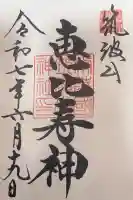 筑波山
恵比寿神
令和七年六月十九日